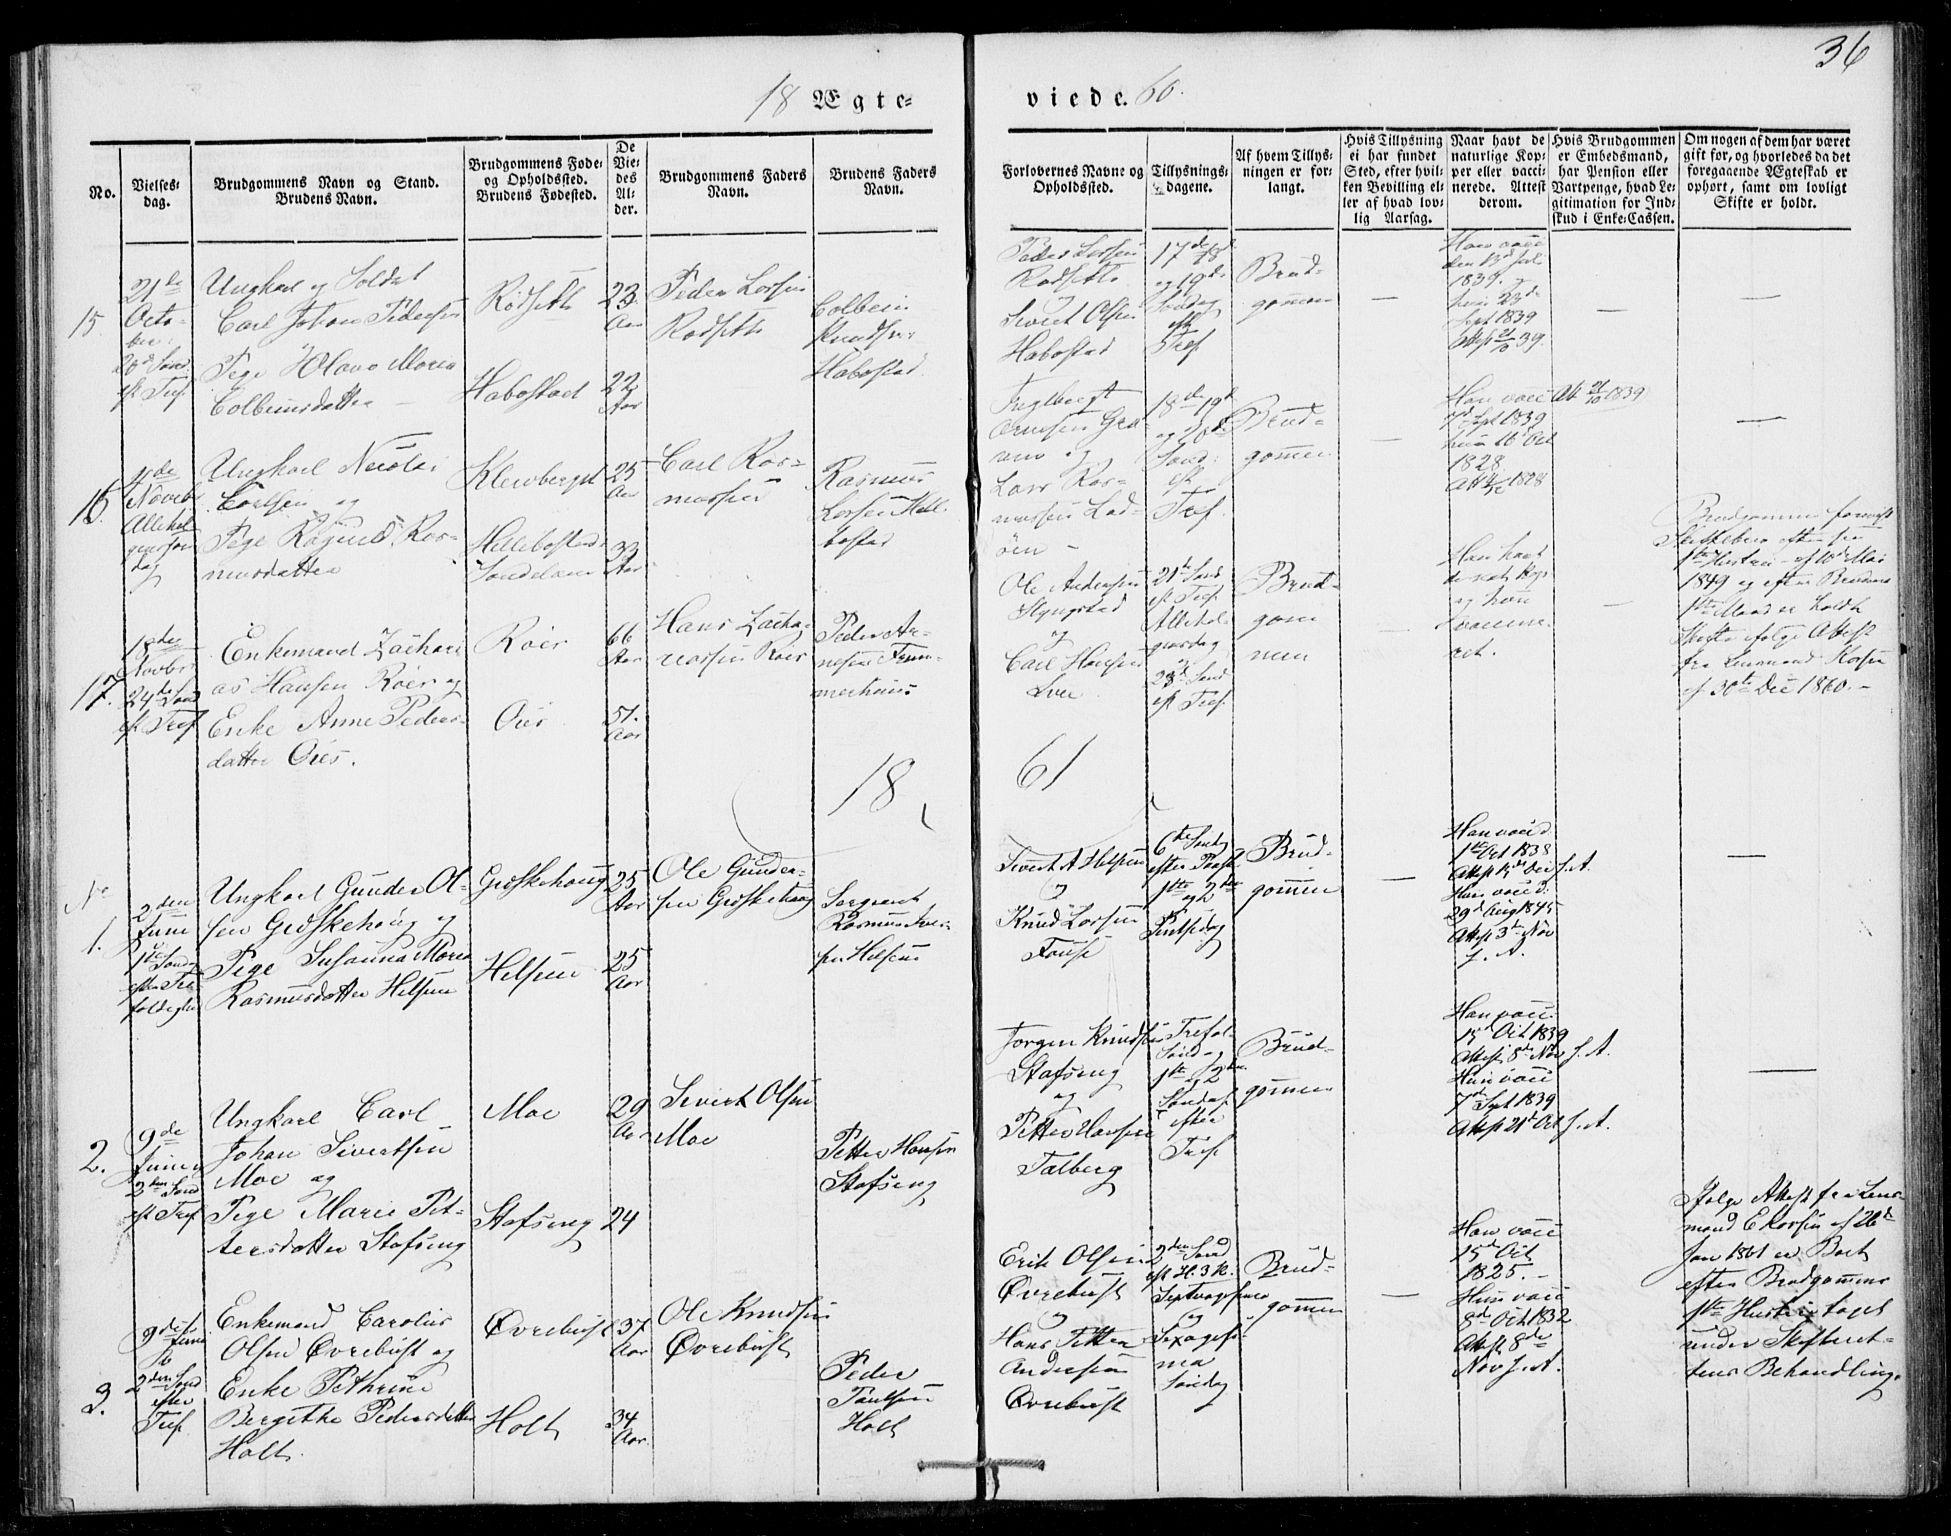 36
18 Ægte-
viede. 60.
No.
Vielses-
dag.
Brudgommens Navn og Stand.
Brudens Navn.
Brudgommens Føde-
og Opholdssted.
Brudens Fødested.
De
Vie-
des
Al-
der.
Brudgommens Faders
Navn.
Brudens Faders
Navn.
Forlovernes Navne og
Opholdssted.
Tillysnings-
dagene.
Af hvem Tillys-
ningen er for-
langt.
Hvis Tillysning
ei har fundet
Sted, efter hvil-
ken Bevilling el-
ler af hvad lov-
lig Aarsag.
Naar havt de
naturlige Kop-
per eller vacci-
nerede. Attest
derom.
Hvis Brudgommen
er Embedsmand,
har Pension eller
Vartpenge, hvad Le-
gitimation for Ind-
skud i Enke-Cassen.
Om nogen af dem har været
gift før, og hvorledes da det
foregaaende Ægteskab er
ophørt, samt om lovligt
Skifte er holdt.
15.
21de
Octo-
ber.
20d Sønd
eft Tref
Ungkarl og Soldat
Carl Johan Pedersen
Pige Olava Maria
Colbeinsdatter
Rødseth
Habostad
23
Aar
22
Aar
Peder Larsen
Rødseth
Colbein
Knudsen
Habostad
Peder Larsen
Rødseth
og
Sivert Olsen
Habostad
17de 18de
og 19de
Søndag
eft
Tref.
Brud-
gommen
—
Han vacc
1839.
hun 23de
Sept 1839
Attest 21/10 39.
—
—
16.
4de
Novebr
Allehel
gensson
dag
Ungkarl Nicolai
Carlsen og
Pige Ragnild Ras-
musdatter
Klevberget
Hellebostad
Søndeland
25
Aar
33
Aar
Carl Ras-
mussen
Rasmus
Larsen Helle-
bostad
og
Lars Ras-
mussen Lad-
øen
18de 19de
og 20de
Sønd:
eft
Tref.
Brud-
gommen
—
Han vacc
7d Sept 1839
hun 16d Oct
1828.
Att 21/10 1839
—
17.
18de
Novbr
24de Sønd
eft Tref
Enkemand Zachari
as Hansen Røer og
Enke Anne Peders-
datter Øies.
Røer
Øies
66
Aar
51.
Aar
Hans Zacha-
riassen Røer
Peder Ar-
nesen
Ole Andersen
Slyngstad
og
Carl Hansen
21de Sønd
eft Tref.
Allehel-
gensdag
og
23d Sønd
eft Tref.
Brud-
gom
men
—
Han havt
de nat Kop
og hun
vaccine
ret.
—
1ste Hustru
1849 og efter Brudens
1ste Mand er holdt
Skifte ifølge Attest
fra Lensmand
af 30te Dec 1860.
18
61
No
1.
2den
Juni
1ste Sønda
efter Tre
foldighed
Ungkarl Gunder Ol-
sen Grøskehaug og
Pige Susanna Maria
Rasmusdatter Helsem
Grøskehaug
Helsem
25
Aar
25
Aar
Ole Gunder-
sen Grøskehaug
Sergeant
Rasmus Iver-
sen Helsem
Sivert A Helsem
og
Knud Larsen
6te Sønda
efter Paaske
1ste og 2den
Pintsedag
Brud-
gommen
—
Han vacc d
1ste Oct 1838
Attest Dec f. A.
Hun vacc d:
29d Aug 1845
Attest 3d Nov
f. A.
—
2.
9de
Juni
2den Sønd
eft Tref
Ungkarl Carl
Johan Sivertsen
Moe og
Pige Marie Pet-
tersdatter Stafseng
Moe
Stafseng
29
Aar
24
Sivert Olsen
Moe
Petter Hansen
Stafseng
Jørgen Knudsen
Stafseng
og
Petter Hansen
Talberg
Trefol-
Søndag
1ste og 2den
Søndag
efter
Tref
Brud-
gommen
Han vacc
15d Oct 1839
Attest 8de Nov f. A.
Hun vacc
7de Sept 1839
Attest 21d Oct f. A.
—
3.
9de
Juni
2den Sønd
efter
Tref
Enkemand Carolus
Olsen Øvrebust og
Enke Pethrine
Bergithe Pedersdatter
Holt.
Øvrebust
Holt
37
Aar
34
Aar
Ole Knudsen
Øvrebust
Peder
Holt
Erik Olsen
Øvrebust
og
Hans Petter
Andersen
Øvrebust
2den Sønd
eft H. 3 K.
Septuagesima
og
Sexagesi-
ma
Søndag
Brud-
gommen
—
Han vacc
15d Oct.
1825.
Hun vacc
8de Oct 1832
Attest 8de
Nov f. A.
Ifølge Attest fra Lens-
mand af 26d
Jan 1861 er Boet
efter Brudgommens
1ste Hustru taget
under Skifteret-
tens Behandling.